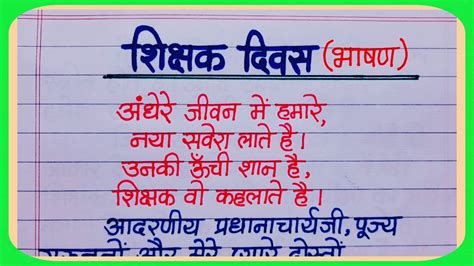 शिक्षक दिवस (भाषण)
अंधेरे जीवन में हमारे,
नया सवेरा लाते है।
उनकी ऊँची शान है,
शिक्षक वो कहलाते है।
आदरणीय प्रधानाचार्यजी, पूज्य
गुरुजनों और मेरे प्यारे दोस्तों